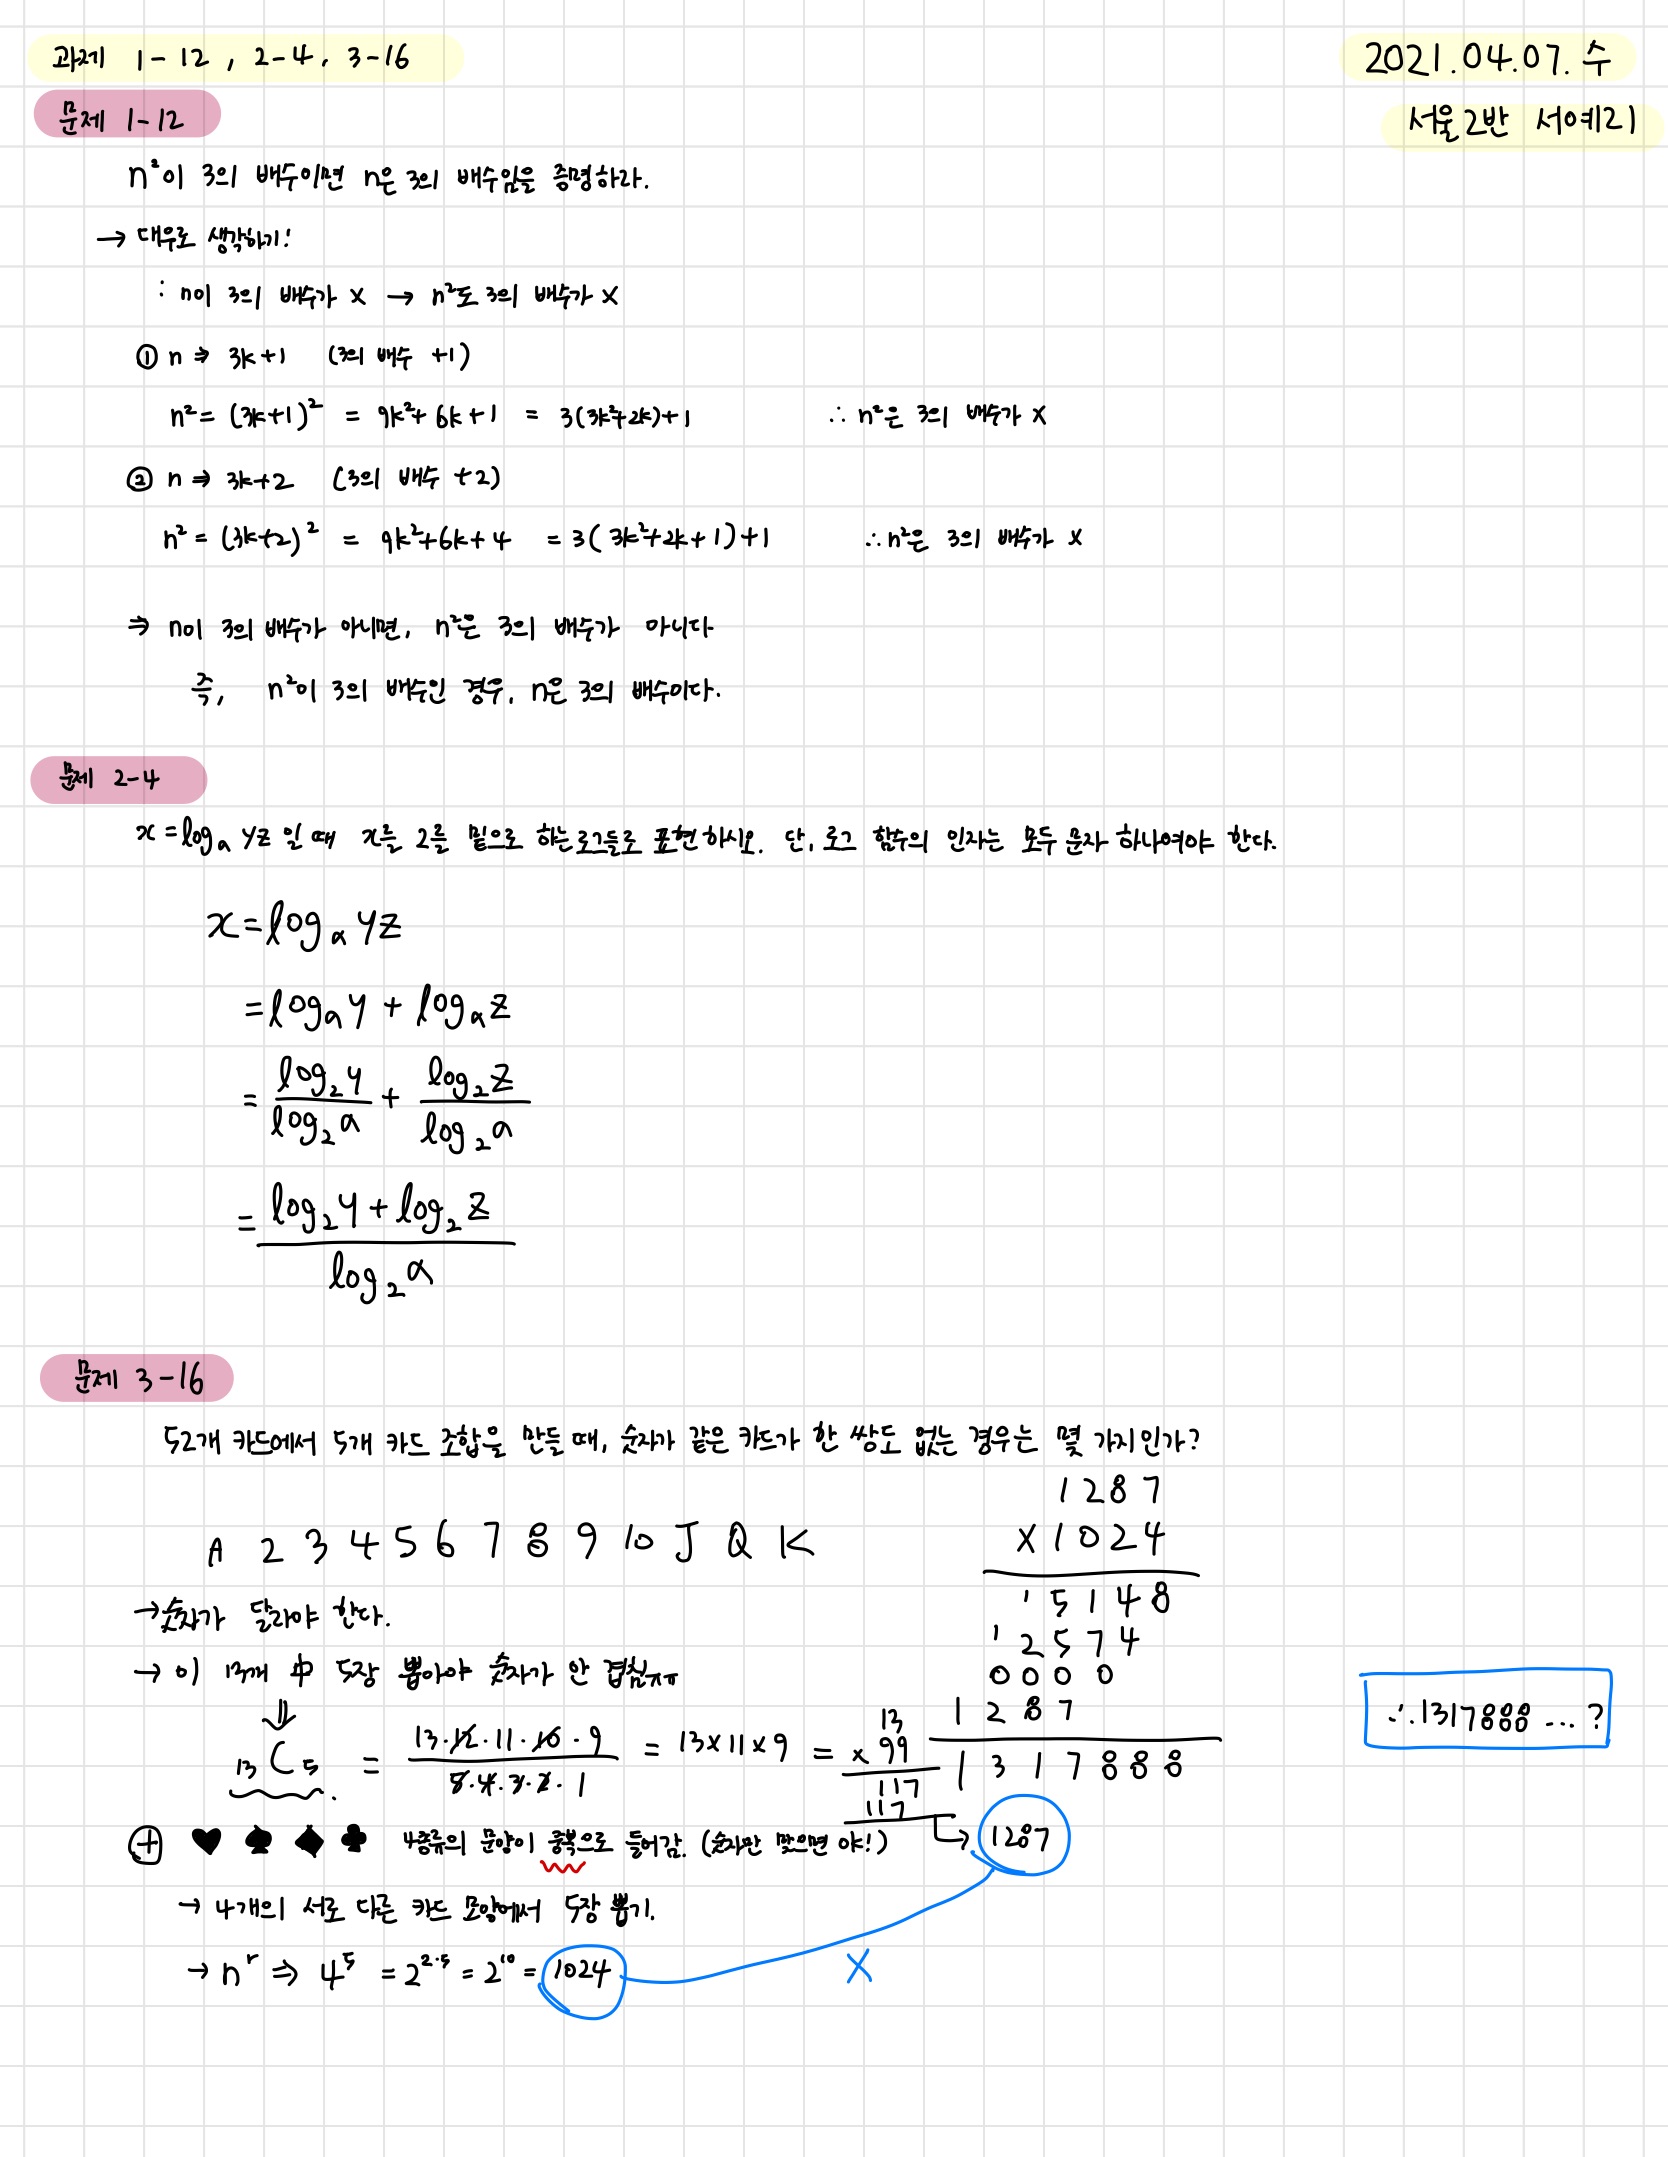 과제 1-12, 2-4, 3-16
2021.04.07.수
문제 1-12
서울2반 서예리
n²이 3의 배수이면 n은 3의 배수임을 증명하라.
→ 대우로 생각하기!
: n이 3의 배수가 x → n²도 3의 배수가 x
① n ⇒ 3k+1 (3의 배수 +1)
n² = (3k+1)² = 9k²+6k+1 = 3(3k²+2k)+1 ∴ n²은 3의 배수가 x
② n ⇒ 3k+2 (3의 배수 +2)
n² = (3k+2)² = 9k²+6k+4 = 3(3k²+2k+1)+1 ∴ n²은 3의 배수가 x
⇒ n이 3의 배수가 아니면, n²은 3의 배수가 아니다
즉, n²이 3의 배수인 경우, n은 3의 배수이다.
문제 2-4
x = logₐ yz 일 때 x를 2를 밑으로 하는 로그들로 표현하시오. 단, 로그 함수의 인자는 모두 문자 하나여야 한다.
x = logₐ yz
= logₐ y + logₐ z
= log₂y / log₂a + log₂z / log₂a
= (log₂y + log₂z) / log₂a
문제 3-16
52개 카드에서 5개 카드 조합을 만들 때, 숫자가 같은 카드가 한 쌍도 없는 경우는 몇 가지인가?
1287
A 2 3 4 5 6 7 8 9 10 J Q K
×1024
→ 숫자가 달라야 한다.
15148
12574
→ 이 13개 中 5장 뽑아야 숫자가 안 겹침ㅠㅠ
0000
1287
⇓
₁₃C₅ = 13·12·11·10·9 / 5·4·3·2·1 = 13×11×9 =
13
×99
117
117
1317888
∴1317888...?
⊕ ♥ ♠ ♦ ♣ 4종류의 문양이 중복으로 들어감. (숫자만 맞으면 야!)
→ 1287
→ 4개의 서로 다른 카드 모양에서 5장 뽑기.
→ nʳ ⇒ 4⁵ = 2²·⁵ = 2¹⁰ = 1024
X